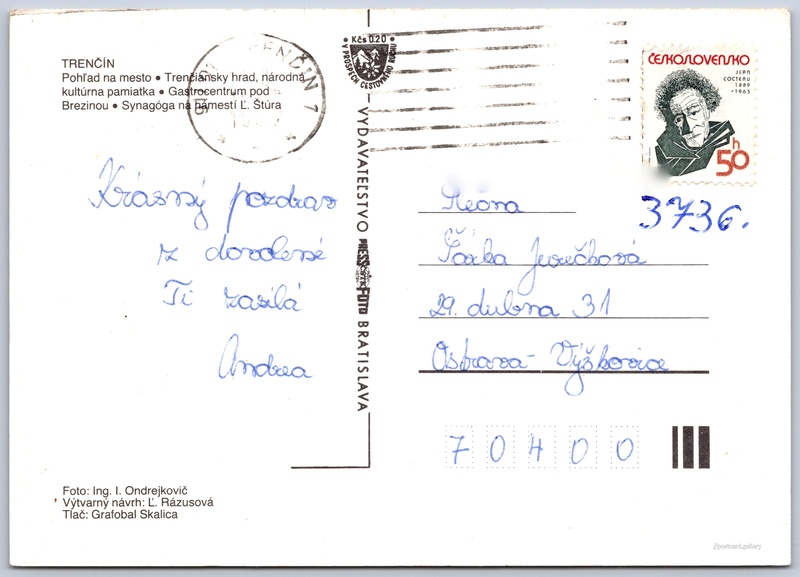 TRENČÍN
Pohľad na mesto • Trenčiansky hrad, národná
kultúrna pamiatka • Gastrocentrum pod
Brezinou • Synagóga na námestí Ľ. Štúra
Krásný pozdrav
z dovolené
Ti zasílá
Andrea
Foto: Ing. I. Ondrejkovič
Výtvarný návrh: Ľ. Rázusová
Tlač: Grafobal Skalica
TRENČÍN 1
Kčs 0.20
V PROSPECH CESTOVNÉHO RUCHU
VYDAVATEĽSTVO PRESSFOTO BRATISLAVA
ČESKOSLOVENSKO
JEAN
COCTEAU
1889
-1963
50 h
3736.
Slečna
Šárka Jurečková
29. dubna 31
Ostrava - Výškovice
70400
postcard.gallery